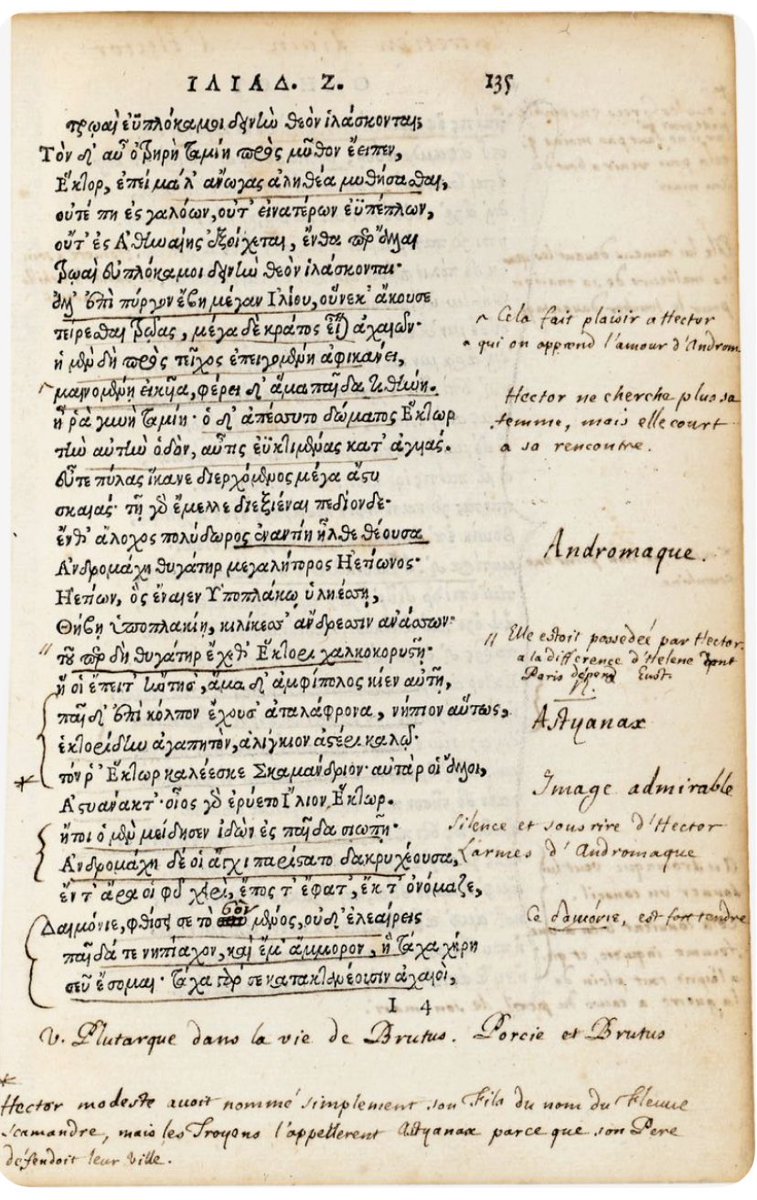 ΙΛΙΑΔ. Ζ. 135
τρωαὶ ἐϋπλόκαμοι δεινὴν θεὸν ἱλάσκονται;
Τὸν δ' αὖ ὀτρηρὴ ταμίη πρὸς μῦθον ἔειπεν,
Ἕκτορ, ἐπεὶ μάλ' ἄνωγας ἀληθέα μυθήσασθαι,
οὔτέ πη ἐς γαλόων, οὔτ' εἰνατέρων ἐϋπέπλων,
οὔτ' ἐς Ἀθηναίης ἐξοίχεται, ἔνθα περ ἄλλαι
τρωαὶ ἐυπλόκαμοι δεινὴν θεὸν ἱλάσκονται·
ἀλλ' ἐπὶ πύργον ἔβη μέγαν Ἰλίου, οὕνεκ' ἄκουσε
τείρεσθαι τρῶας, μέγα δὲ κράτος εἶναι ἀχαιῶν·
^ Cela fait plaisir a Hector
qui on apprend l'amour d'Androm.
ἡ μὲν δὴ πρὸς τεῖχος ἐπειγομένη ἀφικάνει,
μαινομένῃ εἰκυῖα, φέρει δ' ἅμα παῖδα τιθήνη.
ἦ ῥα γυνὴ ταμίη· ὁ δ' ἀπέσσυτο δώματος Ἕκτωρ
τὴν αὐτὴν ὁδὸν, αὖτις ἐϋκτιμένας κατ' ἀγυιάς.
Hector ne cherche plus sa
femme, mais elle court
a sa rencontre.
εὖτε πύλας ἵκανε διερχόμενος μέγα ἄστυ
σκαιάς· τῇ γὰρ ἔμελλε διεξιέναι πεδίονδε·
ἔνθ' ἄλοχος πολύδωρος ἐναντίη ἦλθε θέουσα
Ἀνδρομάχη θυγάτηρ μεγαλήτορος Ἠετίωνος·
Andromaque.
Ἠετίων, ὃς ἔναιεν Ὑποπλάκῳ ὑληέσσῃ,
Θήβῃ ὑποπλακίῃ, κιλίκεσσ' ἄνδρεσσιν ἀνάσσων·
τοῦ περ δὴ θυγάτηρ ἔχεθ' Ἕκτορι χαλκοκορυστῇ·
// Elle estoit possedée par Hector.
a la difference d'Helene dont
Paris depend Eust.
ἥ οἱ ἔπειτ' ἤντησ', ἅμα δ' ἀμφίπολος κίεν αὐτῇ,
παῖδ' ἐπὶ κόλπον ἔχουσ' ἀταλάφρονα, νήπιον αὔτως,
Astyanax
ἑκτορίδην ἀγαπητὸν, ἀλίγκιον ἀστέρι καλῷ·
τόν ῥ' Ἕκτωρ καλέεσκε Σκαμάνδριον· αὐτὰρ οἱ ἄλλοι,
Image admirable
Ἀστυάνακτ'· οἶος γὰρ ἐρύετο Ἴλιον Ἕκτωρ.
ἤτοι ὁ μὲν μείδησεν ἰδὼν ἐς παῖδα σιωπῇ·
Silence et sousrire d'Hector
Ἀνδρομάχη δέ οἱ ἄγχι παρίστατο δακρυχέουσα,
Larmes d'Andromaque
ἔν τ' ἄρα οἱ φῦ χειρὶ, ἔπος τ' ἔφατ', ἔκ τ' ὀνόμαζε,
Δαιμόνιε, φθίσει σε τὸ σὸν μένος, οὐδ' ἐλεαίρεις
Ce δαιμόνιε, est fort tendre
παῖδά τε νηπίαχον, καὶ ἔμ' ἄμμορον, ἣ τάχα χήρη
σεῦ ἔσομαι· τάχα γάρ σε κατακτανέουσιν ἀχαιοὶ,
I 4
V. Plutarque dans la vie de Brutus. Porcie et Brutus
* Hector modeste avoit nommé simplement son Fils du nom du Fleuve
Scamandre, mais les Troyens l'appellerent Astyanax parce que son Pere
défendoit leur ville.